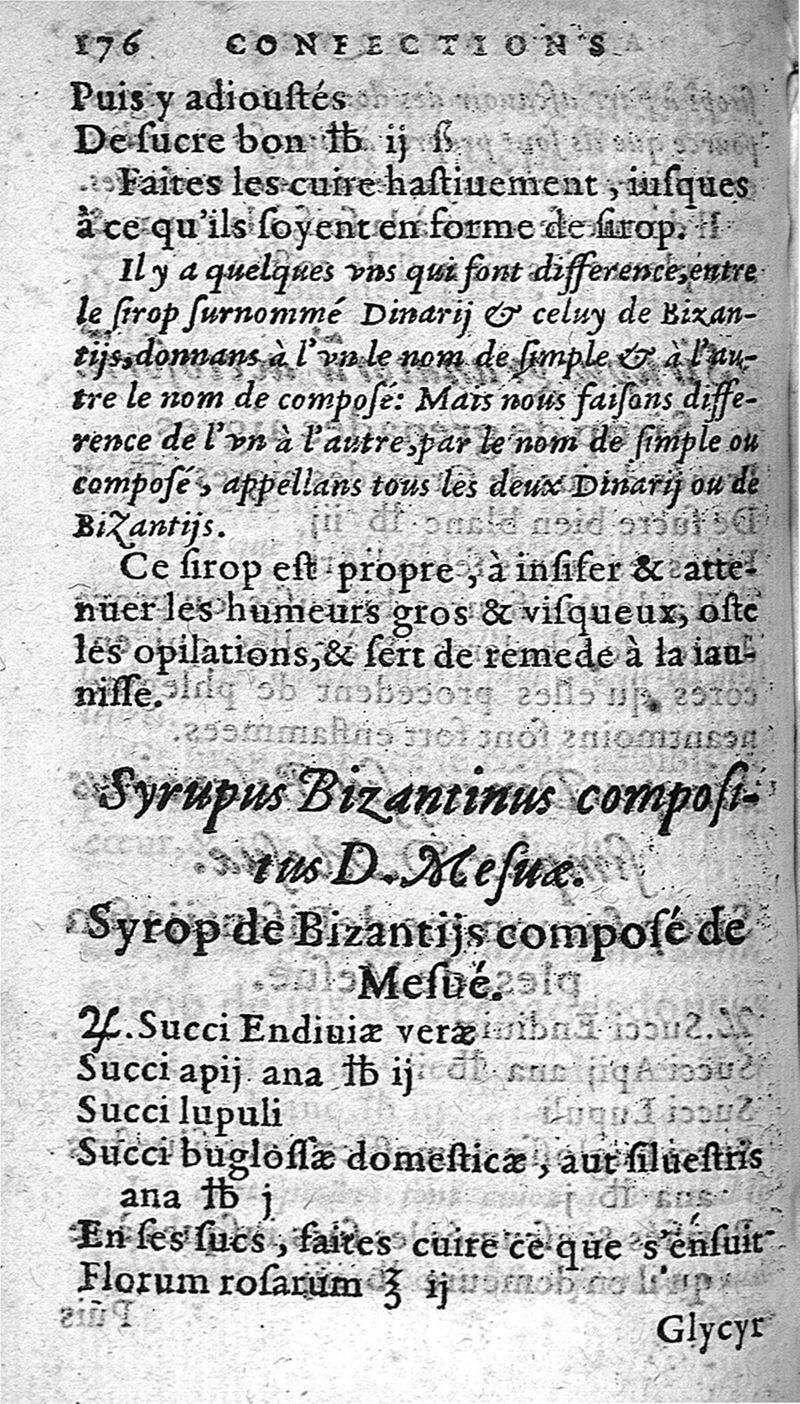 176 CONFECTIONS
Puis y adiouſtés
De ſucre bon ℔ ij ß
Faites les cuire haſtiuement, iuſques
à ce qu'ils ſoyent en forme de ſirop.
Il y a quelques vns qui font difference, entre
le ſirop ſurnommé Dinarij & celuy de Bizan-
tijs, donnans à l'vn le nom de ſimple & à l'au-
tre le nom de compoſé: Mais nous faiſons diffe-
rence de l'vn à l'autre, par le nom de ſimple ou
compoſé, appellans tous les deux Dinarij ou de
Bizantijs.
Ce ſirop eſt propre, à inſiſer & atte-
nuer les humeurs gros & viſqueux, oſte
les opilations, & ſert de remede à la iau-
niſſe.
Syrupus Bizantinus compoſi-
tus D. Meſuæ.
Syrop de Bizantijs compoſé de
Meſué.
♃. Succi Endiuiæ veræ
Succi apij ana ℔ ij
Succi lupuli
Succi bugloſſæ domeſticæ, aut ſilueſtris
ana ℔ j
En ſes ſucs, faites cuire ce que s'enſuit
Florum roſarum ℥ ij
Glycyr